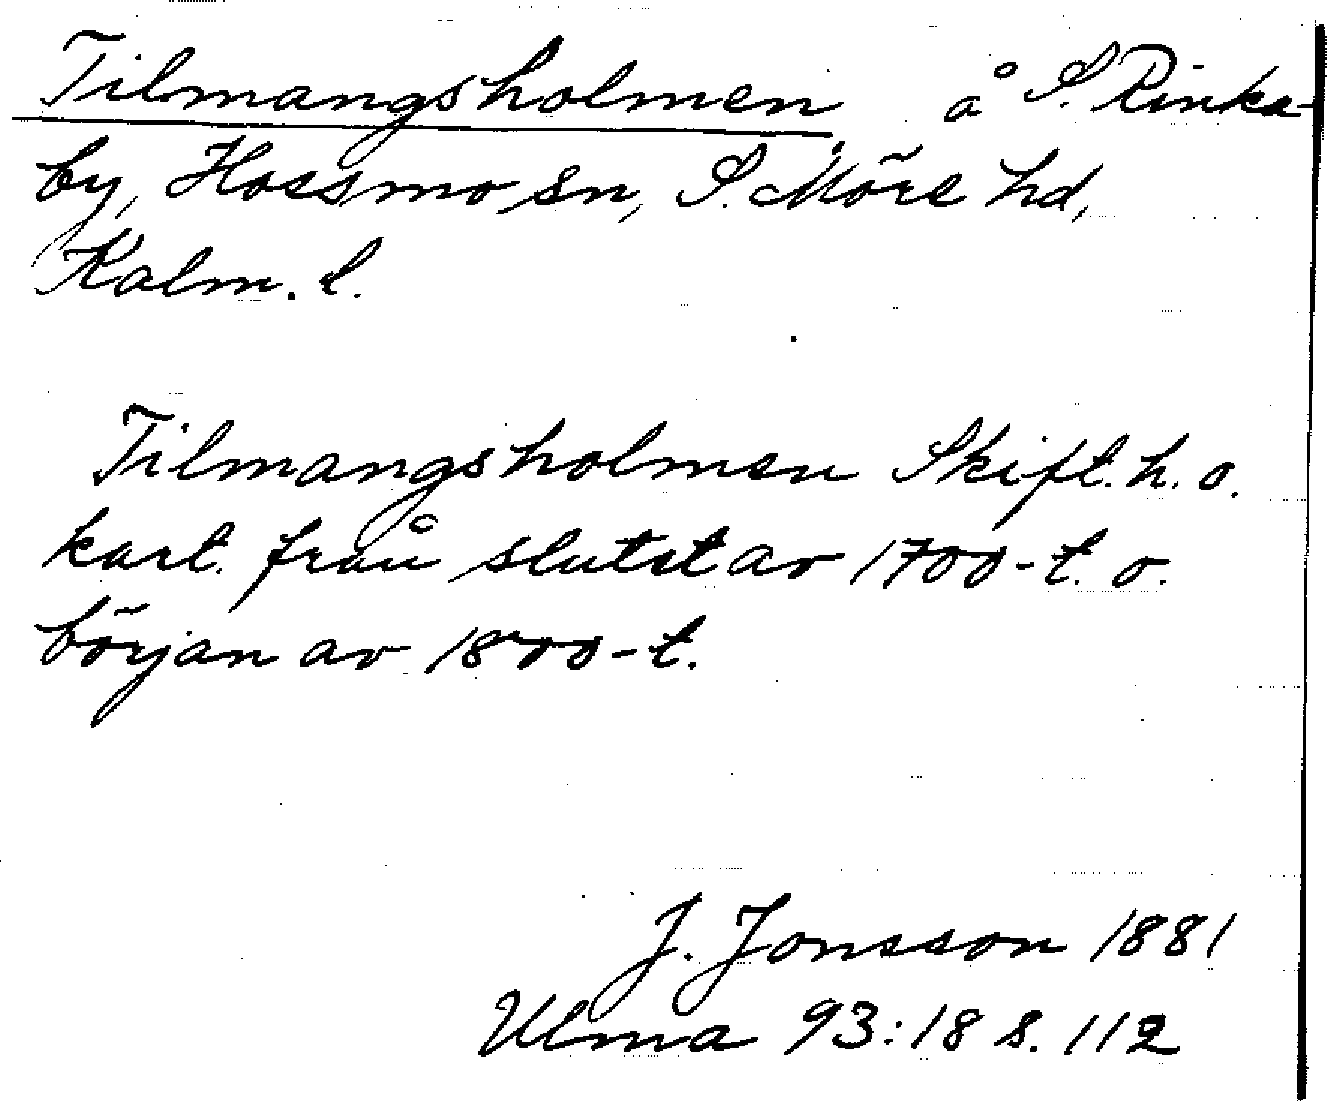 Tilmangsholmen, å S. Rinka-
by, Hossmo sn, S. Möre hd,
Kalm. l.
Tilmangsholmen Skift. h. o.
kart. från slutet av 1700-t. o.
början av 1800-t.
J. Jonsson 1881
Ulma 93:18 s. 112